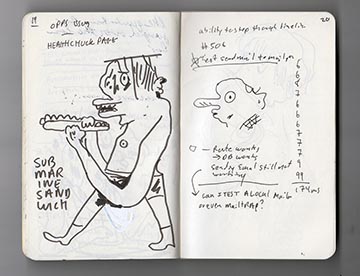 19
OPPS USING
HEALTHCHECK PAGE
SUB
MAR
INE
SAND
WICH
20
ability to step through timeline
#506
Test sendmail to mailtrap
6
6
8
7
6
6
6
7
7
7
9
9
99
174 ms
Route works
→ DB works
sendig email still not
working
→ can I TEST A LOCAL Mailb
or even mailTRAP?